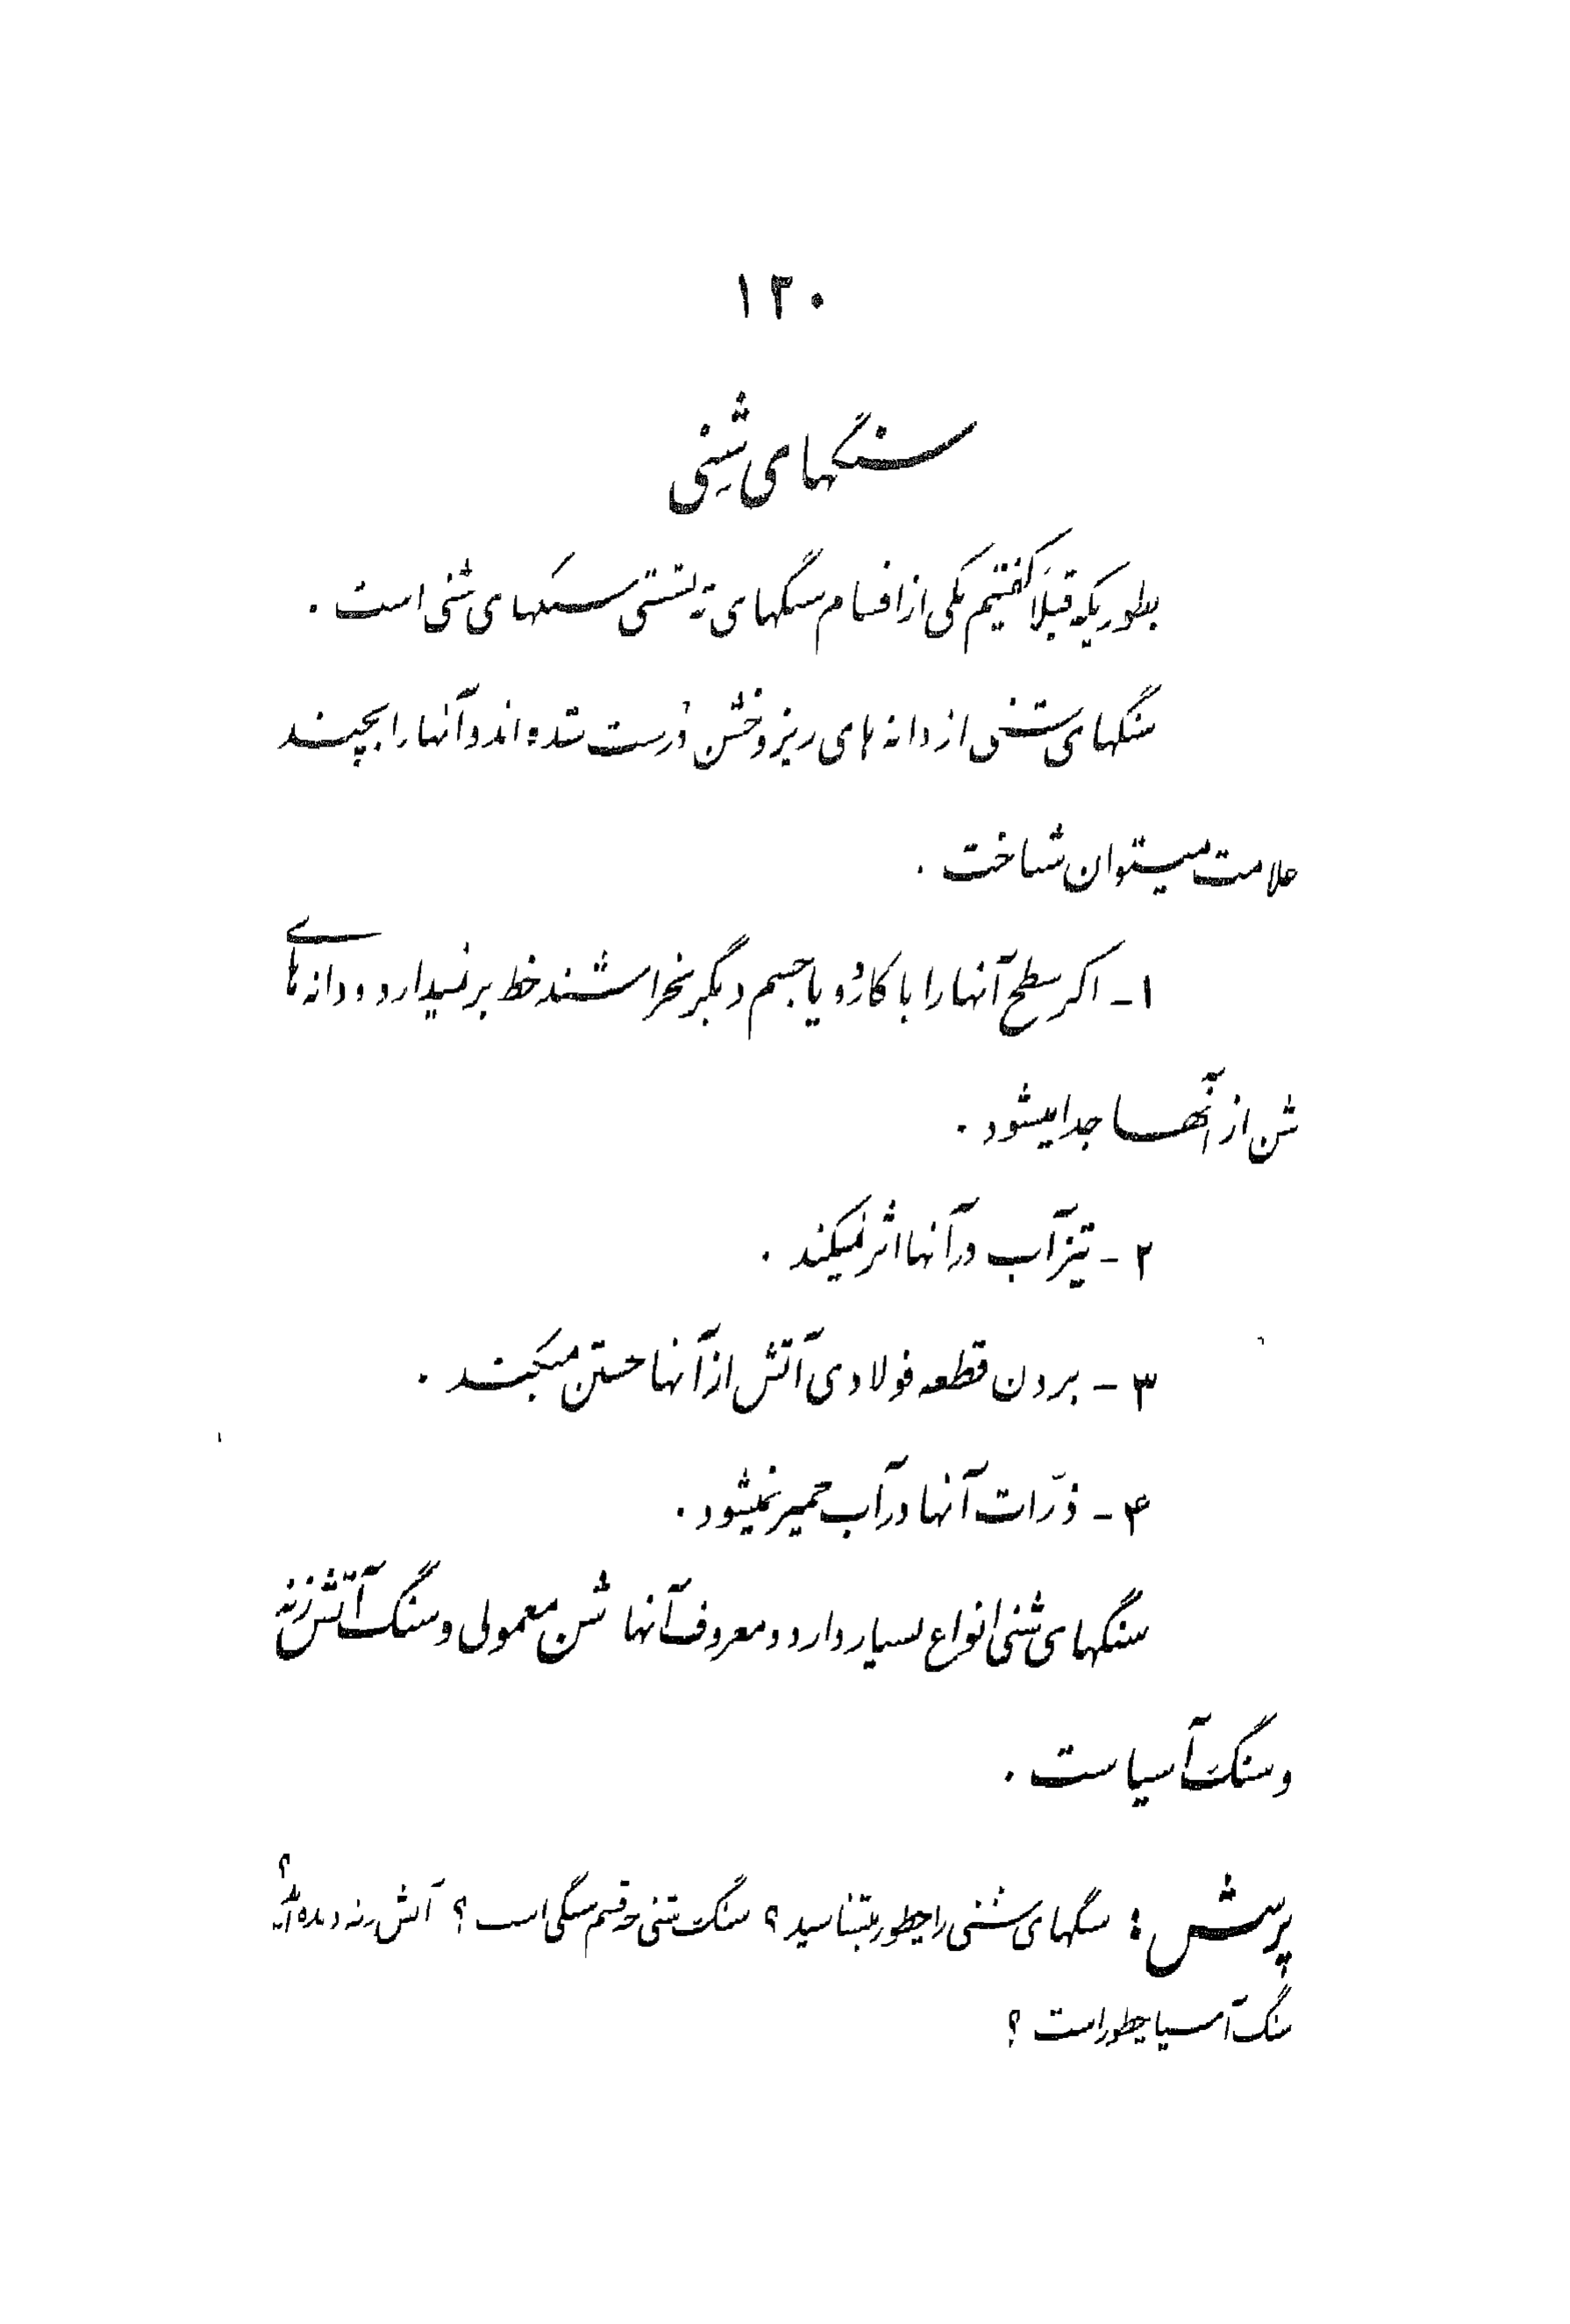 ۱۲۰
سنگهای شِنی
بطوریکه قبلاً گفتیم یکی از اقسام سنگهای ته نشستی سنگهای شنی است .
سنگهای شنی از دانه های ریز و خشن درست شده اند و آنها را بچند
علامت میتوان شناخت .
۱ - اگر سطح آنها را با کارد و یا جسم دیگر بخراشند خط بر نمیدارد و دانه های
شن از آنها جدا میشود .
۲ - تیزآب در آنها اثر نمیکند .
۳ - بزدن قطعه فولادی آتش از آنها جستن میکند .
۴ - ذرّات آنها در آب خمیر نمیشود .
سنگهای شنی انواع بسیار دارد و معروف آنها شن معمولی و سنگ آتش زنه
و سنگ آسیاست .
پرسش : سنگهای شنی را چطور میشناسید ؟ سنگ شنی چه قسم سنگی است ؟ آتش زنه دیده اید ؟
سنگ آسیا چطور است ؟